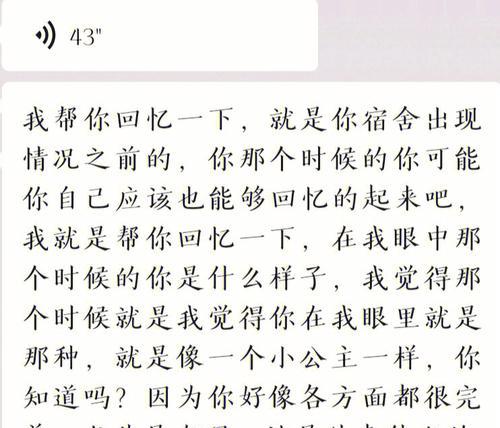 43"
我帮你回忆一下，就是你宿舍出现
情况之前的，你那个时候的你可能
你自己应该也能够回忆的起来吧，
我就是帮你回忆一下，在我眼中那
个时候的你是什么样子，我觉得那
个时候就是我觉得你在我眼里就是
那种，就是像一个小公主一样，你
知道吗？因为你好像各方面都很完